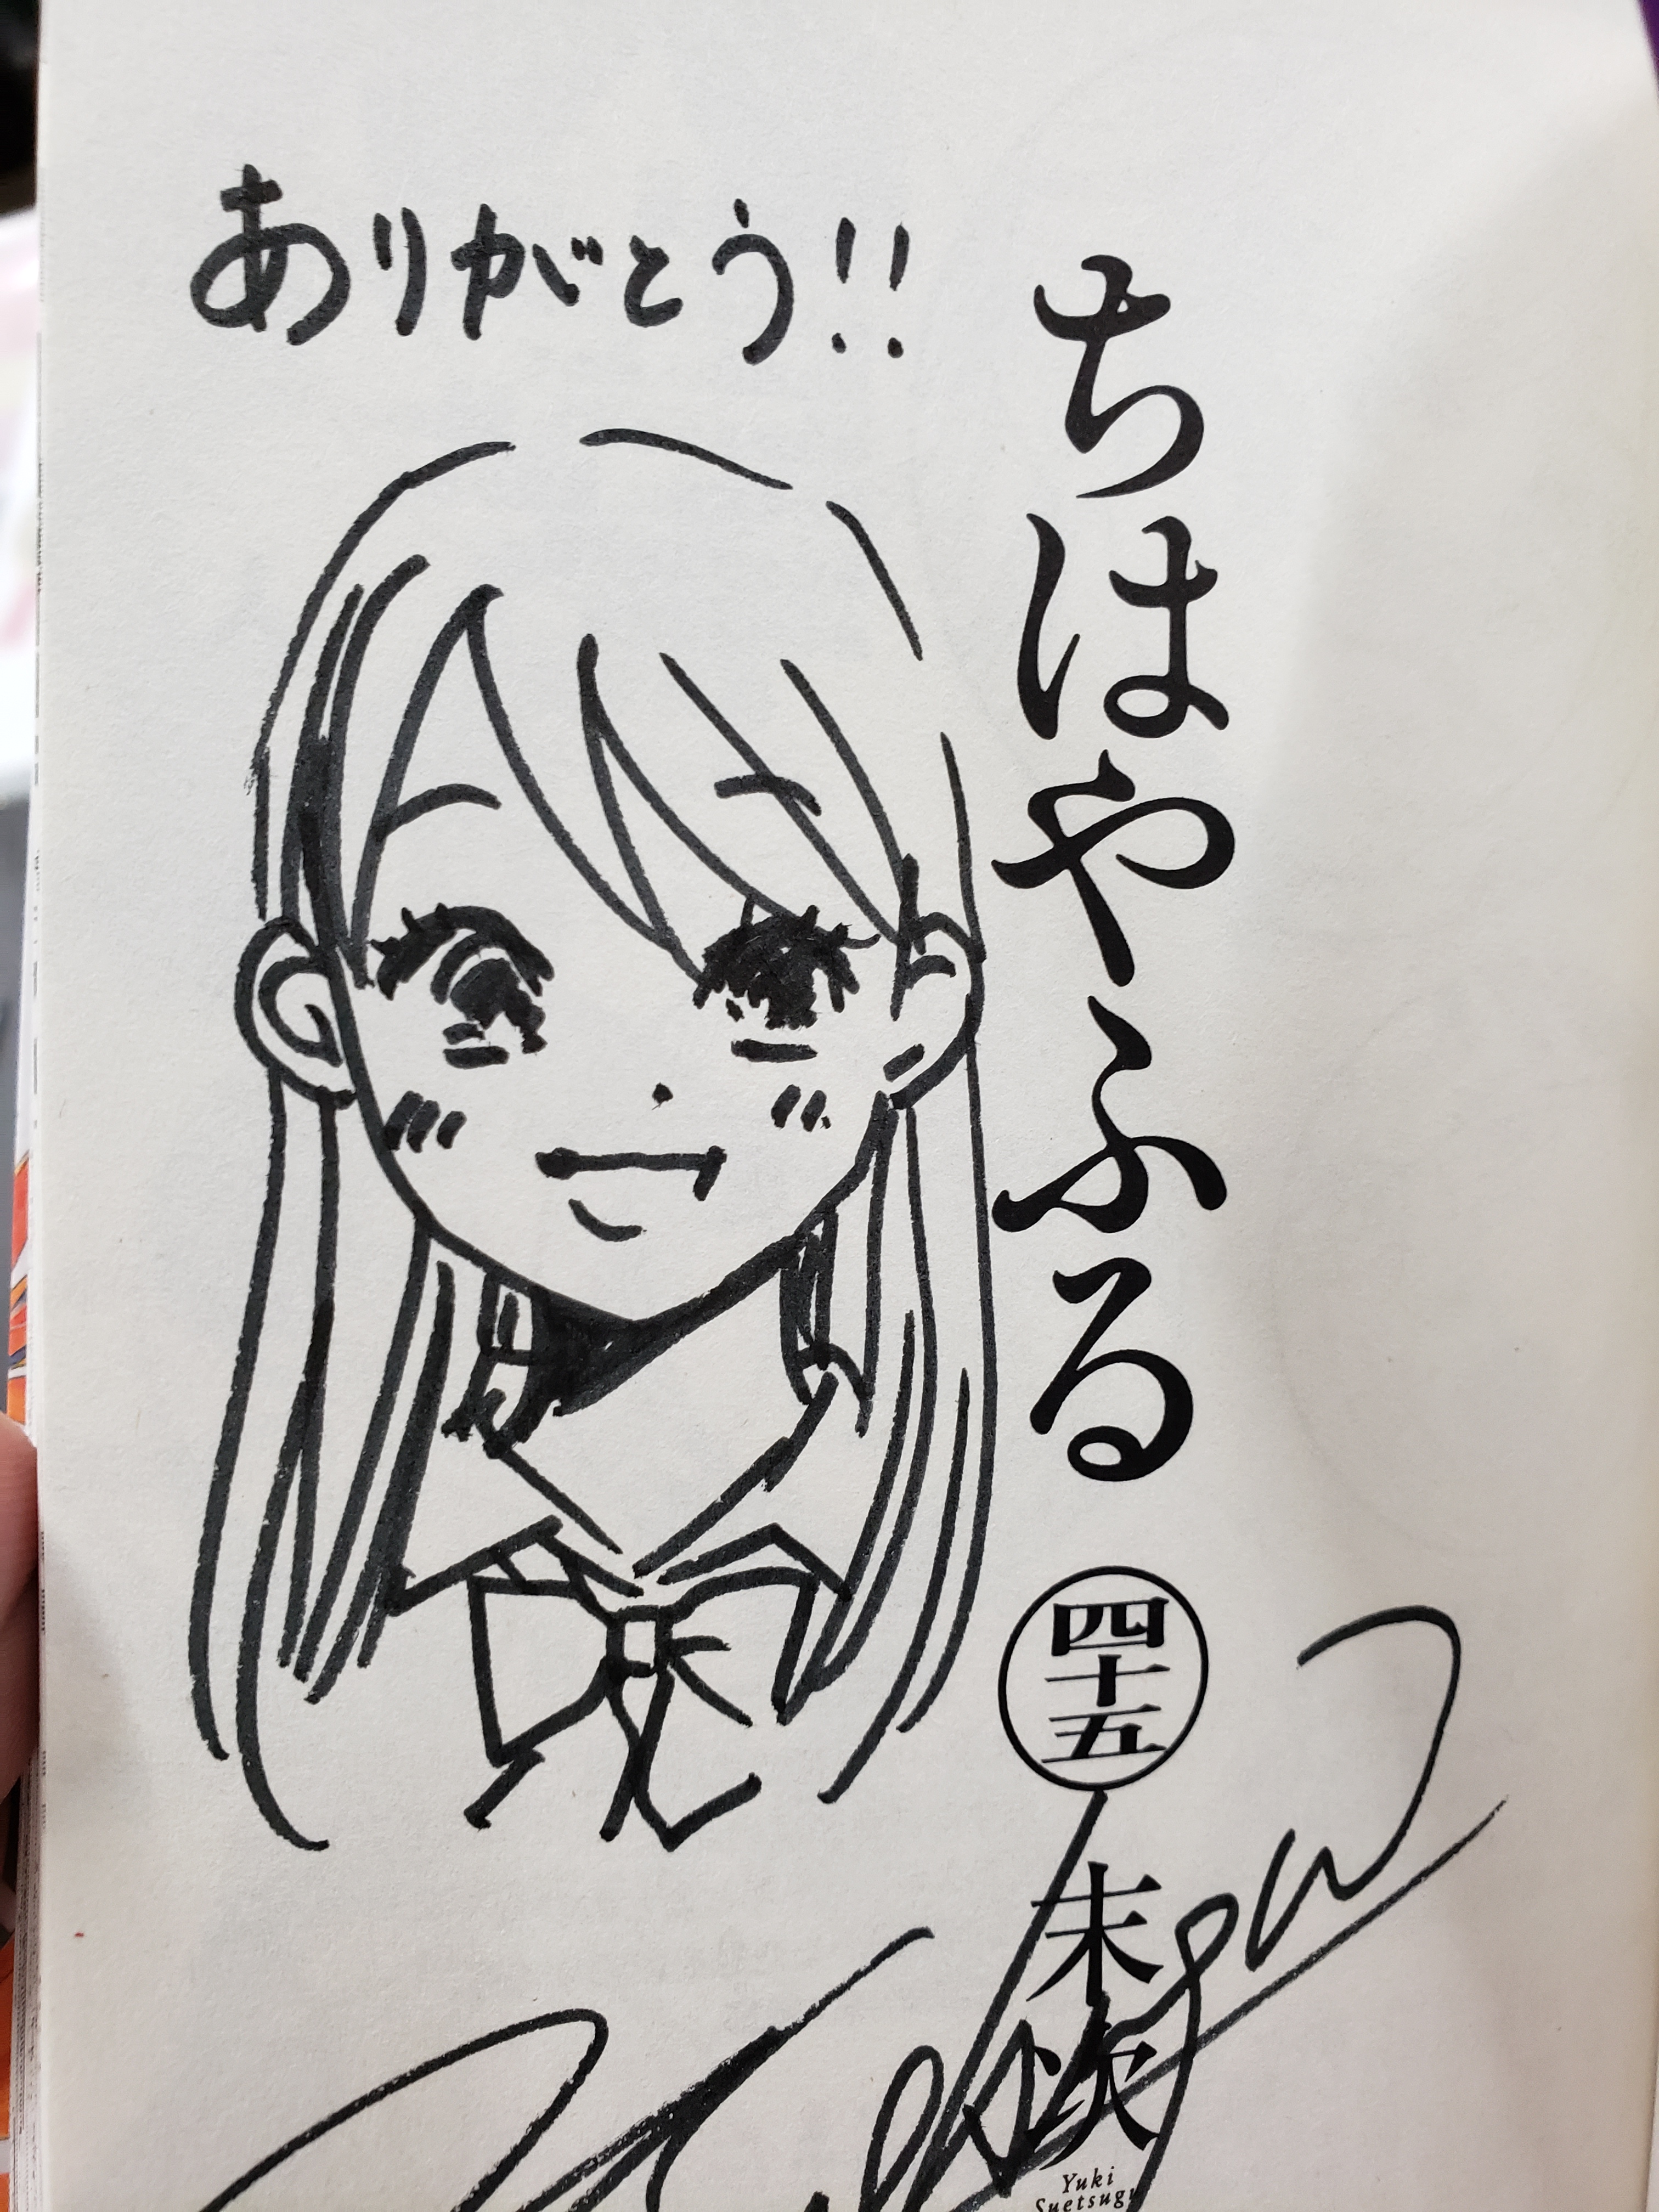 ありがとう!!
ちはやふる
四十五
末次
Yuki
Suetsugu